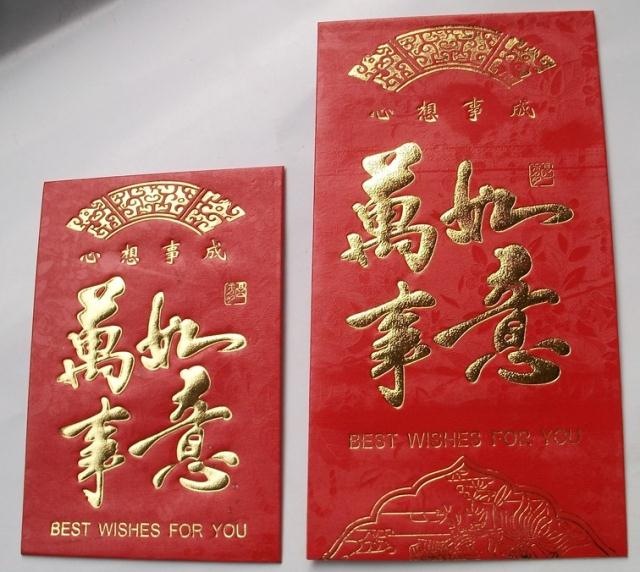 心想事成
萬如
事意
BEST WISHES FOR YOU
心想事成
萬如
事意
BEST WISHES FOR YOU